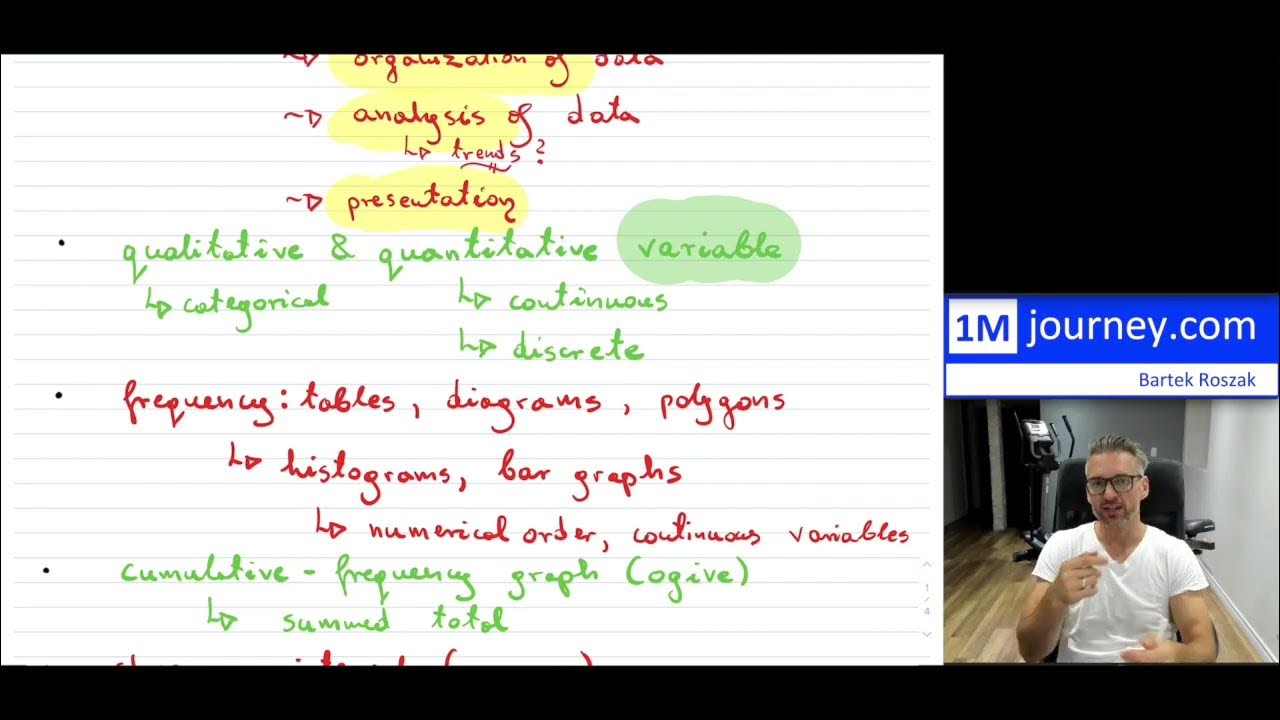 ~▷ organization of data
~▷ analysis of data
↳ trends?
~▷ presentation
• qualitative & quantitative variable
↳ categorical ↳ continuous
↳ discrete
• frequency: tables, diagrams, polygons
↳ histograms, bar graphs
↳ numerical order, continuous variables
• cumulative-frequency graph (ogive)
↳ summed total
1M journey.com
Bartek Roszak
1
/
4